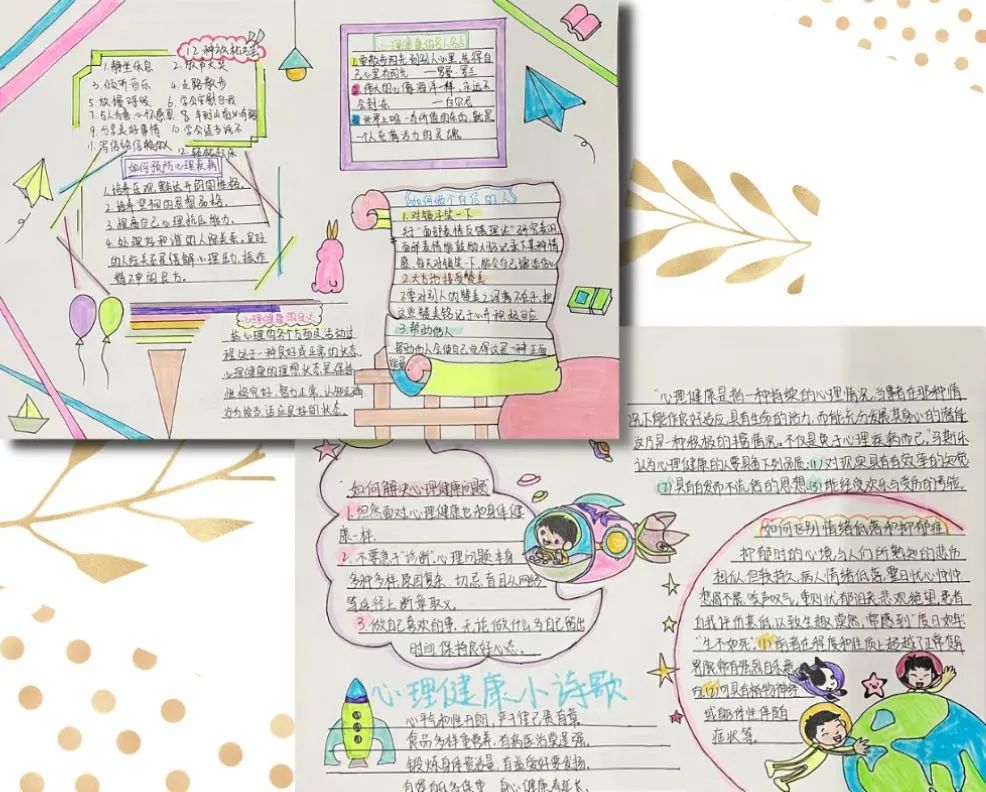 12种放松方法
1.静坐休息 2.放声大笑
3.倾听音乐 4.走路散步
5.放慢呼吸 6.学会宽慰自我
7.与人为善,心怀感恩 8.
9.分享美好事情 10.学会适当说不
11.写信给信赖的人
12.轻松娱乐
如何预防心理疾病
1.培养乐观、豁达开朗的性格。
2.培养坚韧的意志品格。
3.提高自己心理抗压能力。
4.处理好和谐的人际关系,良好
的人际关系是缓解心理压力,摆脱
的良方。
心理健康的名人名言
1.要散布阳光到别人心里,先得自
己心里有阳光 ——罗曼·罗兰
2.伟大的心像海洋一样,永远不
会封冻。 ——白尔尼
3.世界上唯一有价值的东西,就是
一个人充满活力的灵魂。
如何做个自信的人
1.对镜子笑一下
行“面部表情反馈理论”研究表明
面部表情能鼓励人们记录下某种情
2.大方地接受赞美
不要对别人的赞美之词满不在乎,把
这些赞美铭记于心并积极回应
3.帮助他人
帮助他人会使自己觉得这是一种正面
心理健康的定义
指心理的各个方面及活动过
程处于一种良好或正常的状态。
心理健康的理想状态是保持
性格完好、智力正常、认知正确
适应良好的状态。
“心理健康是指一种持续的心理情况,当事者在那种情
况下能作良好适应,具有生命的活力,而能充分发展其身心的潜能
这乃是一种积极的情况。不仅是免于心理疾病而已。”马斯乐
认为心理健康的人要具有下列品质:(1)对现实具有有效率的知觉
(2)具有自发而不流俗的思想
如何解决心理健康问题
1.坦然面对心理健康也和身体健
康一样。
2.不要急于“诊断”心理问题本身
多种多样,原因复杂,切忌盲目从网络
等途径上断章取义。
3.做自己喜欢的事,无论做什么,为自己留出
时间,保持良好心态。
如何区别情绪低落和抑郁症
抑郁时的心境与人们所熟知的悲伤
相似,但较持久,病人情绪低落,整日忧心忡忡
愁眉不展,唉声叹气,重则忧郁沮丧,悲观绝望,患者
自我评价甚低,以致生趣索然,常感到“度日如年”
“生不如死”。(1)前者在程度和性质上超越了正常变异
界限,常有
(2)可具有植物神经
或躯体性伴随
症状等。
心理健康小诗歌
心平气和性开朗,严于律己责自章,
食品多样重营养,有病医治莫逞强。
锻炼身体
身心健康寿延长。